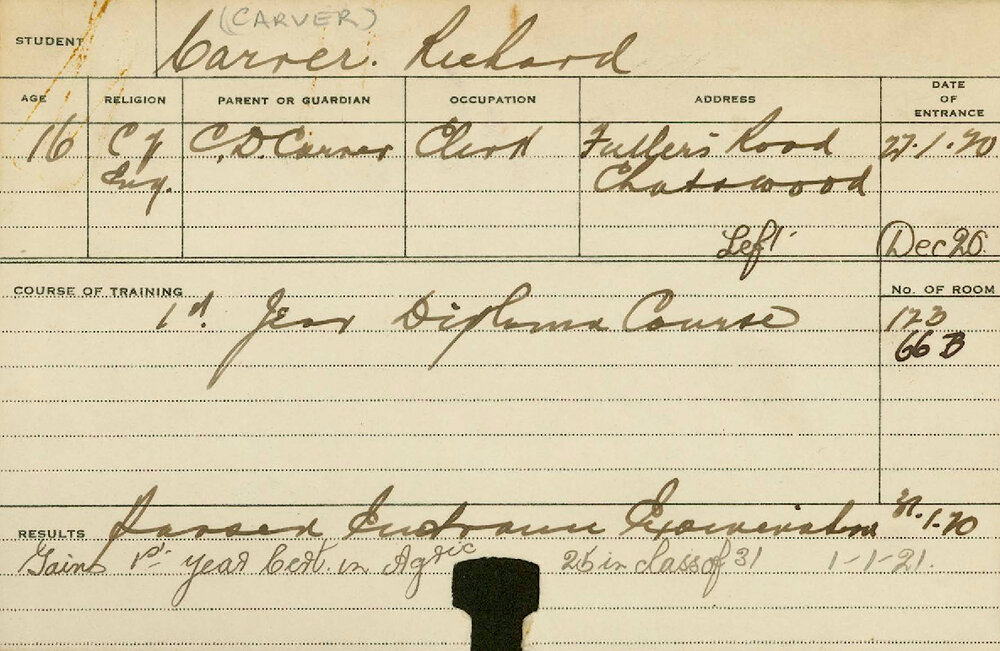 (CARVER)
STUDENT Carver. Richard
AGE RELIGION PARENT OR GUARDIAN OCCUPATION ADDRESS DATE OF ENTRANCE
16 C of C. D. Carver Clerk Fuller's Road 27.1.20
Eng. Chatswood
Left Dec 20.
COURSE OF TRAINING No. OF ROOM
1st. Year Diploma Course 12B
66 B
RESULTS Passed Entrance Examination 31.1.20
Gains 1st year Cert. in Agric 25 in class of 31 1-1-21.